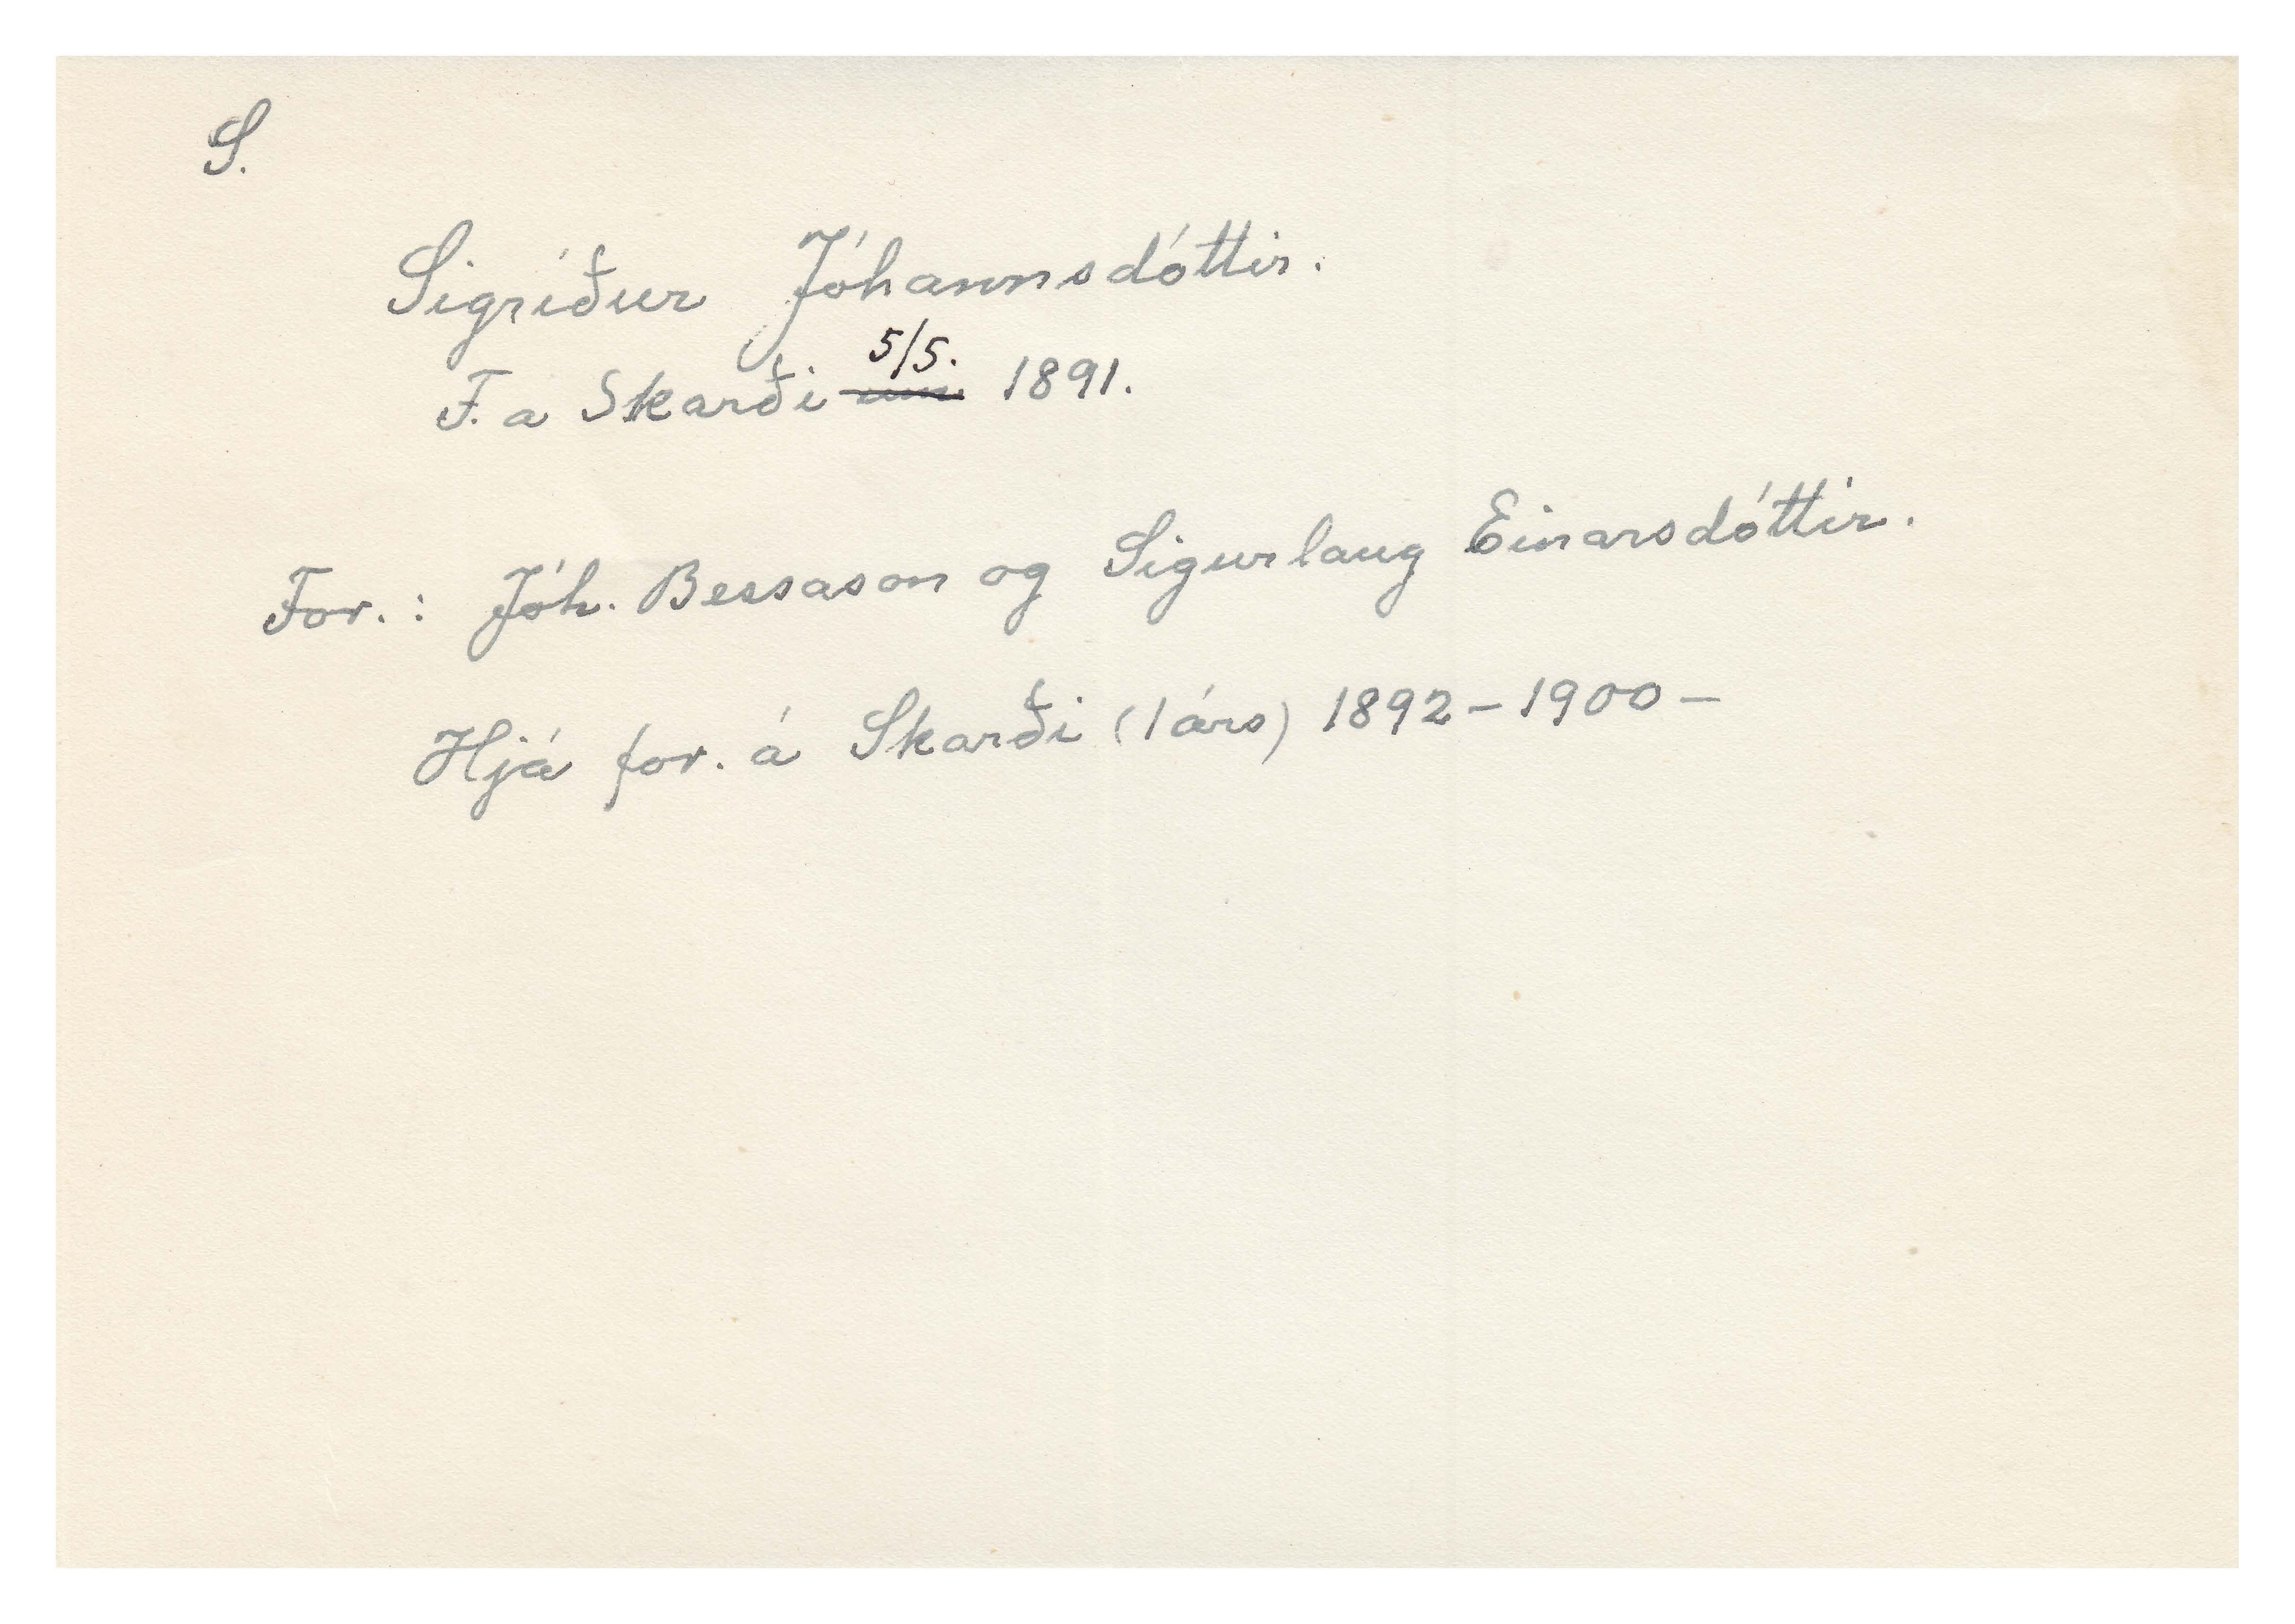 S.
Sigríður Jóhannsdóttir.
F. a Skarði 5/5. 1891.
For.: Jóh. Bessason og Sigurlaug Einarsdóttir.
Hjá for. á Skarði (1 árs) 1892 – 1900 –